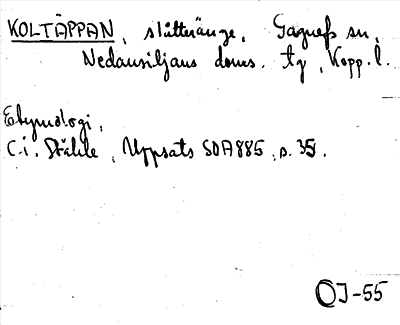 KOLTÄPPAN, slåtteränge, Gagnefs sn,
Nedansiljans doms. tg, Kopp. l.
Etymologi,
C.i. Ståhle, Uppsats SOA 885, s. 35.
OJ-55